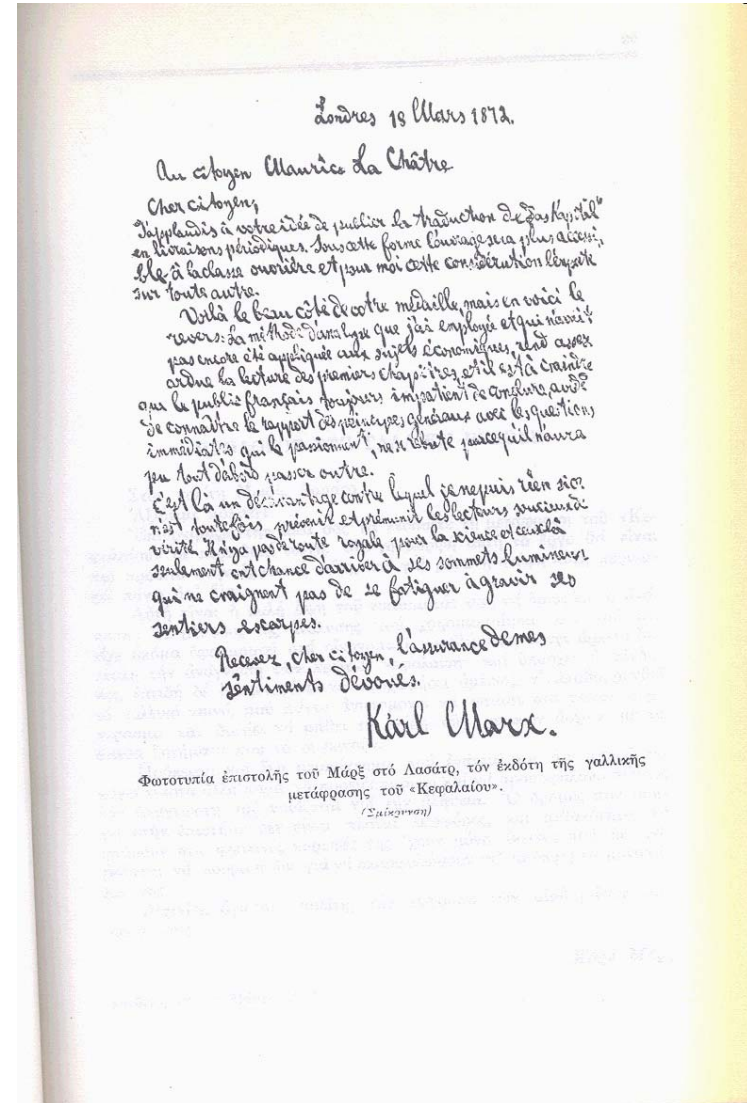 Londres 18 Mars 1872.
Au citoyen Maurice La Châtre
Cher citoyen,
J'applaudis à votre idée de publier la traduction de „Das Kapital"
en livraisons périodiques. Sous cette forme l'ouvrage sera plus accessi,
ble à la classe ouvrière et pour moi cette considération l'emporte
sur toute autre.
Voilà le beau côté de votre médaille, mais en voici le
revers: La méthode d'analyse que j'ai employée et qui n'avait
pas encore été appliquée aux sujets économiques, rend assez
ardue la lecture des premiers chapitres, et il est à craindre
que le public français toujours impatient de conclure, avide
de connaître le rapport des principes généraux avec les questions
immédiates qui le passionnent, ne se rebute parcequ'il n'aura
pu tout d'abord passer outre.
C'est là un désavantage contre lequel je ne puis rien si ce
n'est toutefois prévenir et prémunir les lecteurs soucieux de
vérité. Il n'y a pas de route royale pour la science et ceux là
seulement ont chance d'arriver à ses sommets lumineux
qui ne craignent pas de se fatiguer à gravir ses
sentiers escarpés.
Recevez, cher citoyen, l'assurance de mes
sentiments dévoués.
Karl Marx.
Φωτοτυπία ἐπιστολῆς τοῦ Μάρξ στό Λασάτρ, τόν ἐκδότη τῆς γαλλικῆς
μετάφρασης τοῦ «Κεφαλαίου».
(Σμίκρυνση)